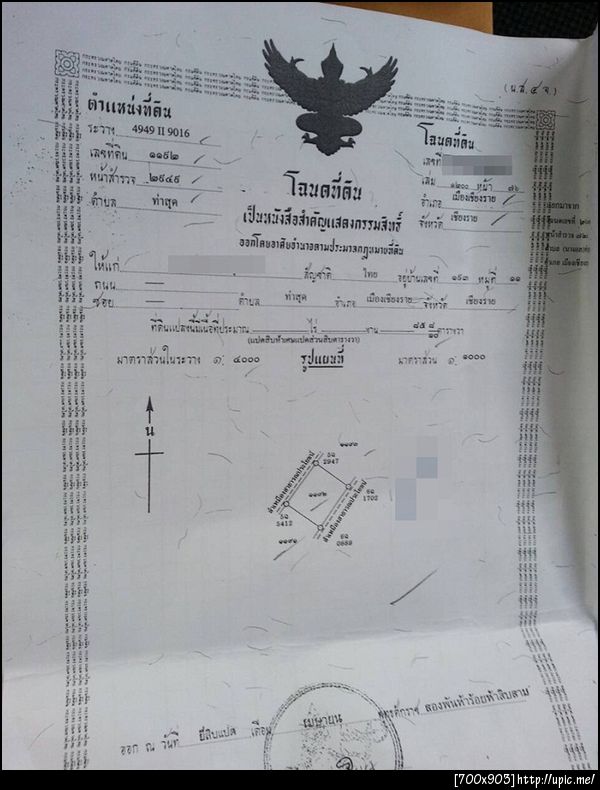 (น.ส. ๔ จ.)
ตำแหน่งที่ดิน
ระวาง 4949 II 9016
เลขที่ดิน ๑๑๙๒
หน้าสำรวจ ๒๙๔๙
ตำบล ท่าสุด
โฉนดที่ดิน
เลขที่
เล่ม ๑๒๐๐ หน้า ๗๖
อำเภอ เมืองเชียงราย
จังหวัด เชียงราย
โฉนดที่ดิน
เป็นหนังสือสำคัญแสดงกรรมสิทธิ์
ออกโดยอาศัยอำนาจตามประมวลกฎหมายที่ดิน
ให้แก่ สัญชาติ ไทย อยู่บ้านเลขที่ ๑๙๓ หมู่ที่ ๑๑
ถนน
ซอย ตำบล ท่าสุด อำเภอ เมืองเชียงราย จังหวัด เชียงราย
ที่ดินแปลงนี้มีเนื้อที่ประมาณ ไร่ งาน ๘๕ ๘/๑๐ ตารางวา
(แปดสิบห้าเศษแปดส่วนสิบตารางวา)
มาตราส่วนในระวาง ๑: ๔๐๐๐ รูปแผนที่ มาตราส่วน ๑: ๑๐๐๐
น
๑๑๙๓
5ฉ
2947
ลำเหมืองสาธารณประโยชน์
๑๑๙๒
6ฉ
1702
5ฉ
5412
ลำเหมืองสาธารณประโยชน์
6ฉ
0889
๑๑๙๑
ออก ณ วันที่ ยี่สิบแปด เดือน เมษายน พุทธศักราช สองพันห้าร้อยห้าสิบสาม
[700x903]http://upic.me/